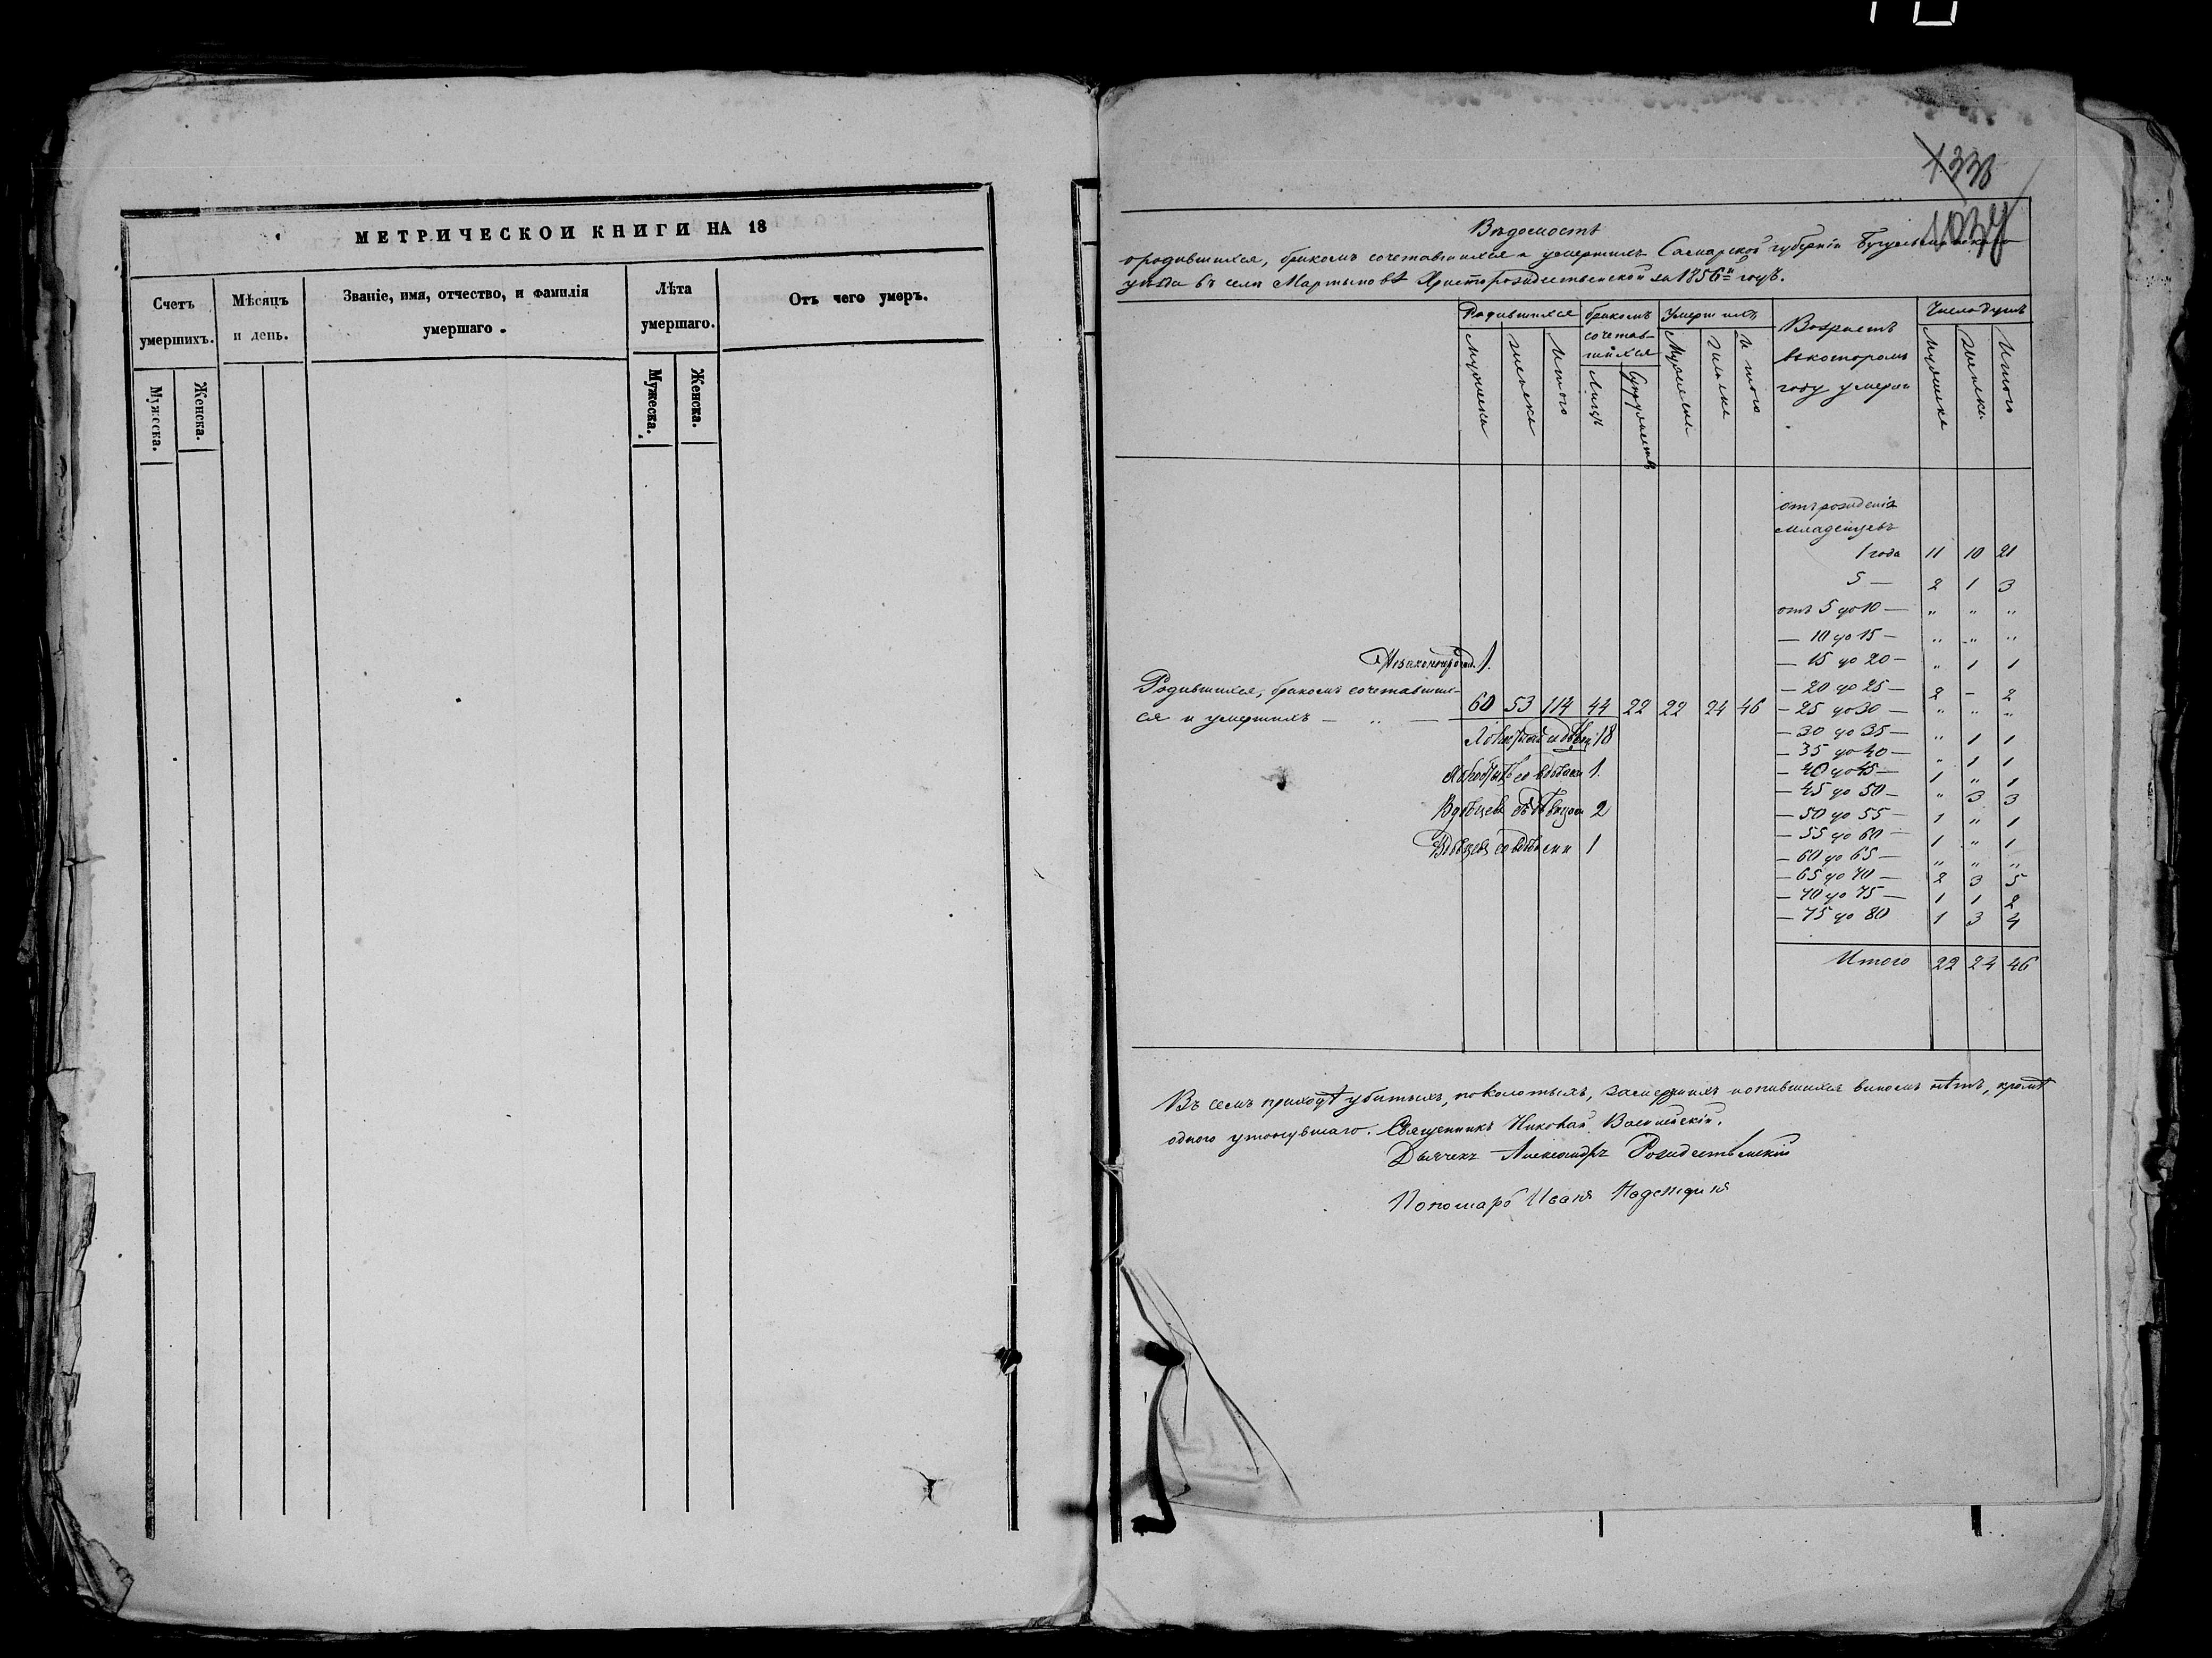 МЕТРИЧЕСКОЙ КНИГИ НА 18
Счетъ умершихъ.
Мужеска.
Женска.
Мѣсяцъ и день.
Званіе, имя, отчество, и фамилія
умершаго.
Лѣта
умершаго.
Мужеска.
Женска.
Отъ чего умеръ.
1338
1034
Вѣдомость
о родившихся, бракомъ сочетавшихся и умершихъ Самарской губерніи Бугульминскаго
уѣзда въ селѣ Мартыновѣ Христорождественской за 1856й годъ.
Родившихся
Мужеска
Женска
Итого
бракомъ
сочетав-
шихся
Лицъ
Супружествъ
Умершихъ
Мужеска
Женска
Итого
Возрастъ
въ которомъ
году умерли
Число душъ
Мужеска
Женска
Итого
отъ рожденія
младенцевъ
1 года 11 10 21
5 — 2 1 3
отъ 5 до 10 — " " "
— 10 до 15 — " " "
— 15 до 20 — " 1 1
— 20 до 25 — 2 - 2
— 25 до 30 — " " "
— 30 до 35 — " 1 1
— 35 до 40 — " 1 1
— 40 до 45 — 1 " 1
— 45 до 50 — " 3 3
— 50 до 55 — 1 " 1
— 55 до 60 — 1 " 1
— 60 до 65 — " " "
— 65 до 70 — 2 3 5
— 70 до 75 — 1 1 2
— 75 до 80 1 3 4
Итого 22 24 46
Незаконнорожд. 1.
Родившихся, бракомъ сочетавших-
ся и умершихъ — " — 60 53 114 44 22 22 24 46
18
со вдовами 1.
Вдовцевъ съ дѣвицами 2
Вдовцевъ со вдовами 1
Въ семъ приходѣ убитыхъ, поколотыхъ, замерзшихъ и опившихся виномъ нѣтъ, кромѣ
одного утонувшаго. Священникъ Николай
Дьячекъ Александръ Рождественскій
Пономарь Иванъ Надеждинъ